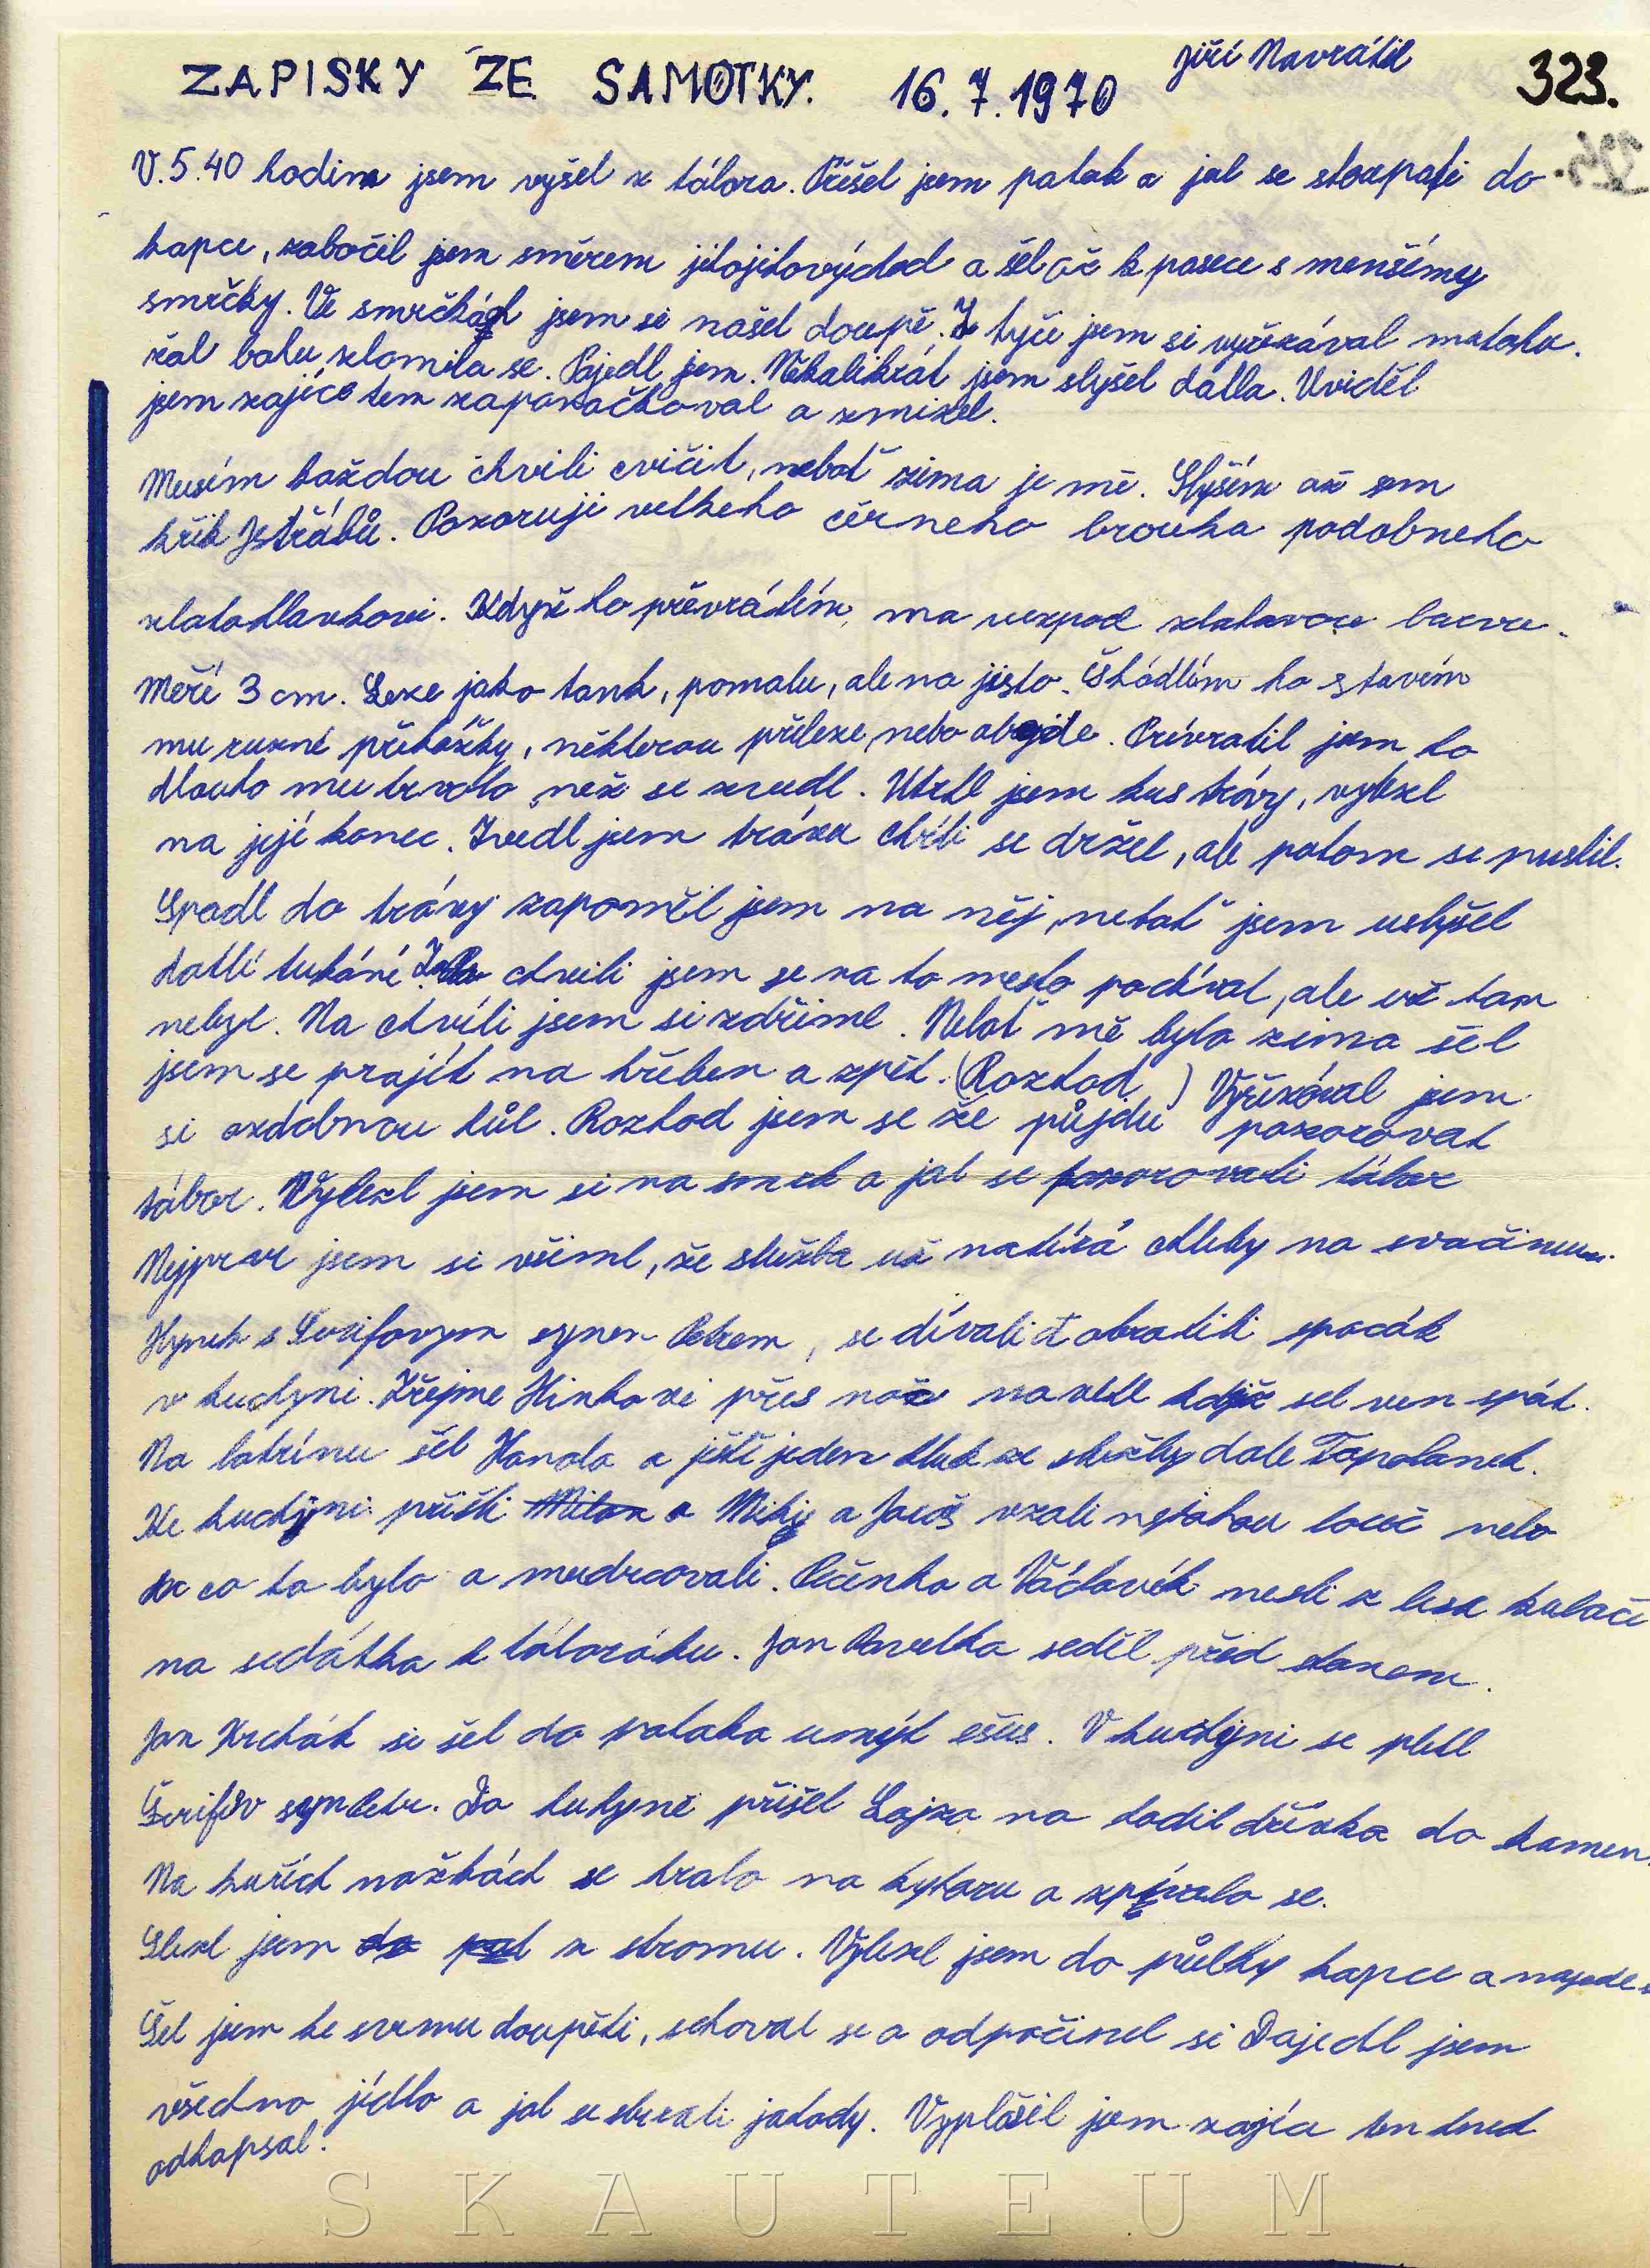 ZAPISKY ZE SAMOTKY. 16.7.1970 Jiří Navrátil 323.
V.5.40 hodin jsem vyšel z tábora. Přešel jsem potok a jal se stoupati do
kopce, zabočil jsem směrem jihojihovýchod a šel až k pasece s menšímy
smrčky. Ve smrčkách jsem si našel doupě. Z tyče jsem si vyřezával
žal bohu zlomila se. Pojedl jsem. Několikrát jsem slyšel datla. Uviděl
jsem zajíce ten zapanáčkoval a zmizel.
Musím každou chvili cvičit, neboť zima je mě. Slyším až sem
křik Jstřábů. Pozoruji velkeho černeho brouka podobneho
zlatohlavkovi. Když ho převrátím, ma vezpod zlatavou barvu.
Měří 3 cm. Leze jako tank, pomalu, ale na jisto. Škádlím ho stavím
mu ruzné překážky, některou přeleze, nebo obejde. Prěvratil jsem ho
dlouho mu trvalo než se zvedl. Utrhl jsem kus trávy, vylezl
na její konec. Zvedl jsem trávu chvíli se držel, ale potom se pustil.
Spadl do trávy zapoměl jsem na něj, neboť jsem uslyšel
datlí tukání. Za chvili jsem se na to mesto podíval, ale už tam
nebyl. Na chvíli jsem si zdříml. Neboť mě byla zima šel
jsem se projít na hřeben a zpět. (Rozhod ) Vyřezával jsem
si ozdobnou hůl. Rozhod jsem se že půjdu pozorovat
tábor. Vylezl jsem si na smrk a jal se pozorovati tábor
Nejprve jsem si všiml, že služba už natírá chleby na svačinu.
Hynek s Šerifovym synem Petrem, se dívali a obratili spacák
v kuchyni. Zřejme Hinkovi přes noc navlhl když sel ven spát.
Na latrínu šel Handa a ještě jeden kluk ze služby dale Topolanek.
Ke kuchyni přišli a Miky a Jaroš vzali nejakou louč nebo
co to bylo a mudrcovali. Pěčenka a Václavík nesli z lesa kulači
na sedátka k táboráku. Jan Pavelka seděl před stanem.
Jan Krchák si šel do potoka umýt ešus. V kuchyni se pletl
Šerifův syn Petr. Do kuchyně přišel Lojza na hodil dřívka do kamen.
Na kuřích nožkách se hralo na kytaru a zpívalo se.
Slezl jsem z stromu. Vylezl jsem do půlky kopce a
Šel jsem ke svemu doupěti, schoval se a odpočinul si Dojedl jsem
všechno jídlo a jal se sbirati jahody. Vyplašil jsem zajíce ten hned
odhopsal.
SKAUTEUM